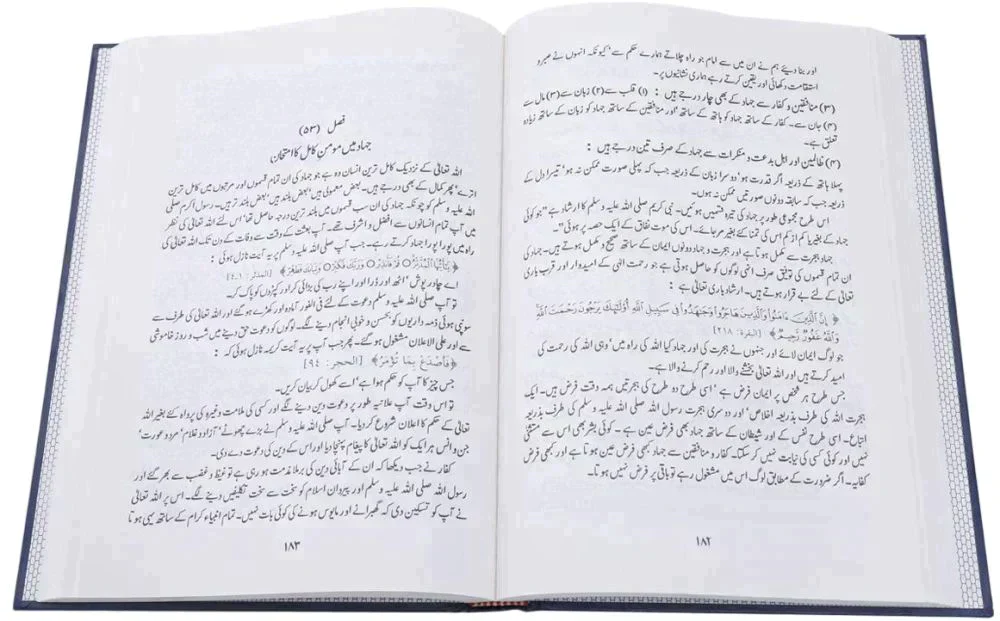 اور بنا دیئے ہم نے ان میں سے امام جو راہ چلاتے ہمارے حکم سے' کیونکہ انہوں نے صبر و
استقامت دکھائی اور یقین کرتے رہے ہماری نشانیوں پر۔
(۳) منافقین و کفار سے جہاد کے بھی چار درجے ہیں : (۱) قلب سے (۲) زبان سے (۳) مال سے
(۴) جان سے۔ کفار کے ساتھ جہاد کو ہاتھ کے ساتھ' اور منافقین کے ساتھ جہاد کو زبان کے ساتھ زیادہ
تعلق ہے۔
(۴) ظالمین اور اہل بدعت و منکرات سے جہاد کے صرف تین درجے ہیں :
پہلا ہاتھ کے ذریعہ اگر قدرت ہو' دوسرا زبان کے ذریعہ جب کہ پہلی صورت ممکن نہ ہو' تیسرا دل کے
ذریعہ جب کہ سابقہ دونوں صورتیں ممکن نہ ہوں۔
اس طرح مجموعی طور پر جہاد کی تیرہ قسمیں ہوئیں۔ نبی کریم صلی اللہ علیہ وسلم کا ارشاد ہے "جو کوئی
جہاد کے بغیر یا کم از کم اس کی تمنا کئے بغیر مر جائے۔ اس کی موت نفاق کے ایک حصہ پر ہوئی"۔
جہاد ہجرت سے مکمل ہوتا ہے اور ہجرت و جہاد دونوں ایمان کے ساتھ صحیح و مکمل ہوتے ہیں۔ جہاد کی
ان تمام قسموں کی توفیق صرف انہی لوگوں کو حاصل ہوتی ہے جو رحمت الٰہی کے امیدوار اور قرب باری
تعالیٰ کے لئے بے قرار ہوتے ہیں۔ ارشاد باری تعالیٰ ہے :
﴿ إِنَّ ٱلَّذِينَ ءَامَنُوا۟ وَٱلَّذِينَ هَاجَرُوا۟ وَجَٰهَدُوا۟ فِى سَبِيلِ ٱللَّهِ أُو۟لَٰٓئِكَ يَرْجُونَ رَحْمَتَ ٱللَّهِ
وَٱللَّهُ غَفُورٌ رَّحِيمٌ ﴾ [البقرة: ٢١٨]
جو لوگ ایمان لائے اور جنہوں نے ہجرت کی اور جہاد کیا اللہ کی راہ میں' وہی اللہ کی رحمت کی
امید کرتے ہیں اور اللہ تعالیٰ بخشنے والا اور رحم کرنے والا ہے۔
جس طرح ہر شخص پر ایمان فرض ہے' اسی طرح دو طرح کی ہجرتیں ہمہ وقت فرض ہیں۔ ایک
ہجرت اللہ کی طرف بذریعہ اخلاص' اور دوسری ہجرت رسول اللہ صلی اللہ علیہ وسلم کی طرف بذریعہ
اتباع۔ اسی طرح نفس کے اور شیطان کے ساتھ جہاد بھی فرض عین ہے۔ کوئی بشر بھی اس سے مستثنیٰ
نہیں اور کوئی کسی کی نیابت نہیں کر سکتا۔ کفار و منافقین سے جہاد کبھی فرض عین ہوتا ہے اور کبھی فرض
کفایہ۔ اگر ضرورت کے مطابق لوگ اس میں مشغول رہے تو باقی پر فرض نہیں ہوتا۔
۱۸۲
فصل (۵۳)
جہاد میں مومن کامل کا امتحان
اللہ تعالیٰ کے نزدیک کامل ترین انسان وہ ہے جو جہاد کی ان تمام قسموں اور مرحلوں میں کامل ترین
اترے' پھر کمال کے بھی درجے ہیں۔ بعض معمولی ہیں' بعض بلند ہیں' بعض بلند تر ہیں۔ رسول اکرم صلی
اللہ علیہ وسلم کو چونکہ جہاد کی ان سب قسموں میں بلند ترین درجہ حاصل تھا' اس لئے اللہ تعالیٰ کی نظر
میں آپ تمام انسانوں سے افضل و اشرف تھے۔ آپ بعثت کے وقت سے وفات کے دن تک اللہ تعالیٰ کی
راہ میں پورا پورا جہاد کرتے رہے۔ جب آپ صلی اللہ علیہ وسلم پر یہ آیت نازل ہوئی :
﴿ يَٰٓأَيُّهَا ٱلْمُدَّثِّرُ ○ قُمْ فَأَنذِرْ ○ وَرَبَّكَ فَكَبِّرْ ○ وَثِيَابَكَ فَطَهِّرْ ﴾ [المدثر: ١-٤]
اے چادر پوش' اٹھ اور ڈرا اور اپنے رب کی بڑائی کر اور کپڑوں کو پاک کر۔
تو آپ صلی اللہ علیہ وسلم دعوت کے لئے فی الفور آمادہ اور کھڑے ہو گئے اور اللہ تعالیٰ کی طرف سے
سونپی ہوئی ذمہ داریوں کو بحسن و خوبی انجام دینے لگے۔ لوگوں کو دعوت حق دینے میں شب و روز خاموشی
سے اور علی الاعلان مشغول ہو گئے۔ پھر جب آپ پر یہ آیت کریمہ نازل ہوئی کہ :
﴿ فَٱصْدَعْ بِمَا تُؤْمَرُ ﴾ [الحجر: ٩٤]
جس چیز کا آپ کو حکم ہوا ہے' اسے کھول کر بیان کریں۔
تو اس وقت آپ علانیہ طور پر دعوت دین دینے لگے اور کسی کی ملامت وغیرہ کی پرواہ کئے بغیر اللہ
تعالیٰ کے حکم کا اعلان شروع کر دیا۔ آپ صلی اللہ علیہ وسلم نے بڑے چھوٹے' آزاد و غلام' مرد و عورت'
جن و انس ہر ایک کو اللہ تعالیٰ کا پیغام پہنچا دیا اور اس کے دین کی دعوت دے دی۔
کفار نے جب دیکھا کہ ان کے آبائی دین کی برملا مذمت ہو رہی ہے تو غیظ و غضب سے بھر گئے اور
رسول اللہ صلی اللہ علیہ وسلم اور پیروان اسلام کو سخت سے سخت تکلیفیں دینے لگے۔ اس پر اللہ تعالیٰ
نے آپ کو تسکین دی کہ گھبرانے اور مایوس ہونے کی کوئی بات نہیں۔ تمام انبیاء کرام کے ساتھ یہی ہوتا
۱۸۳